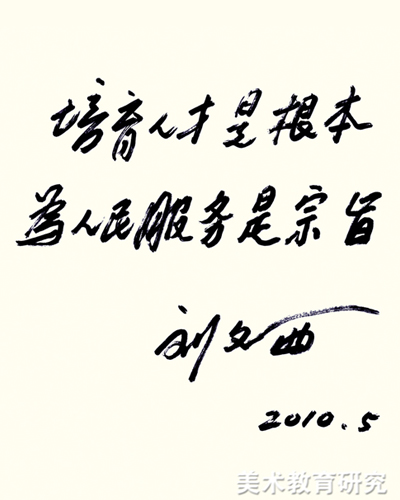 培育人才是根本
為人民服务是宗旨
刘文西
2010.5
美术教育研究